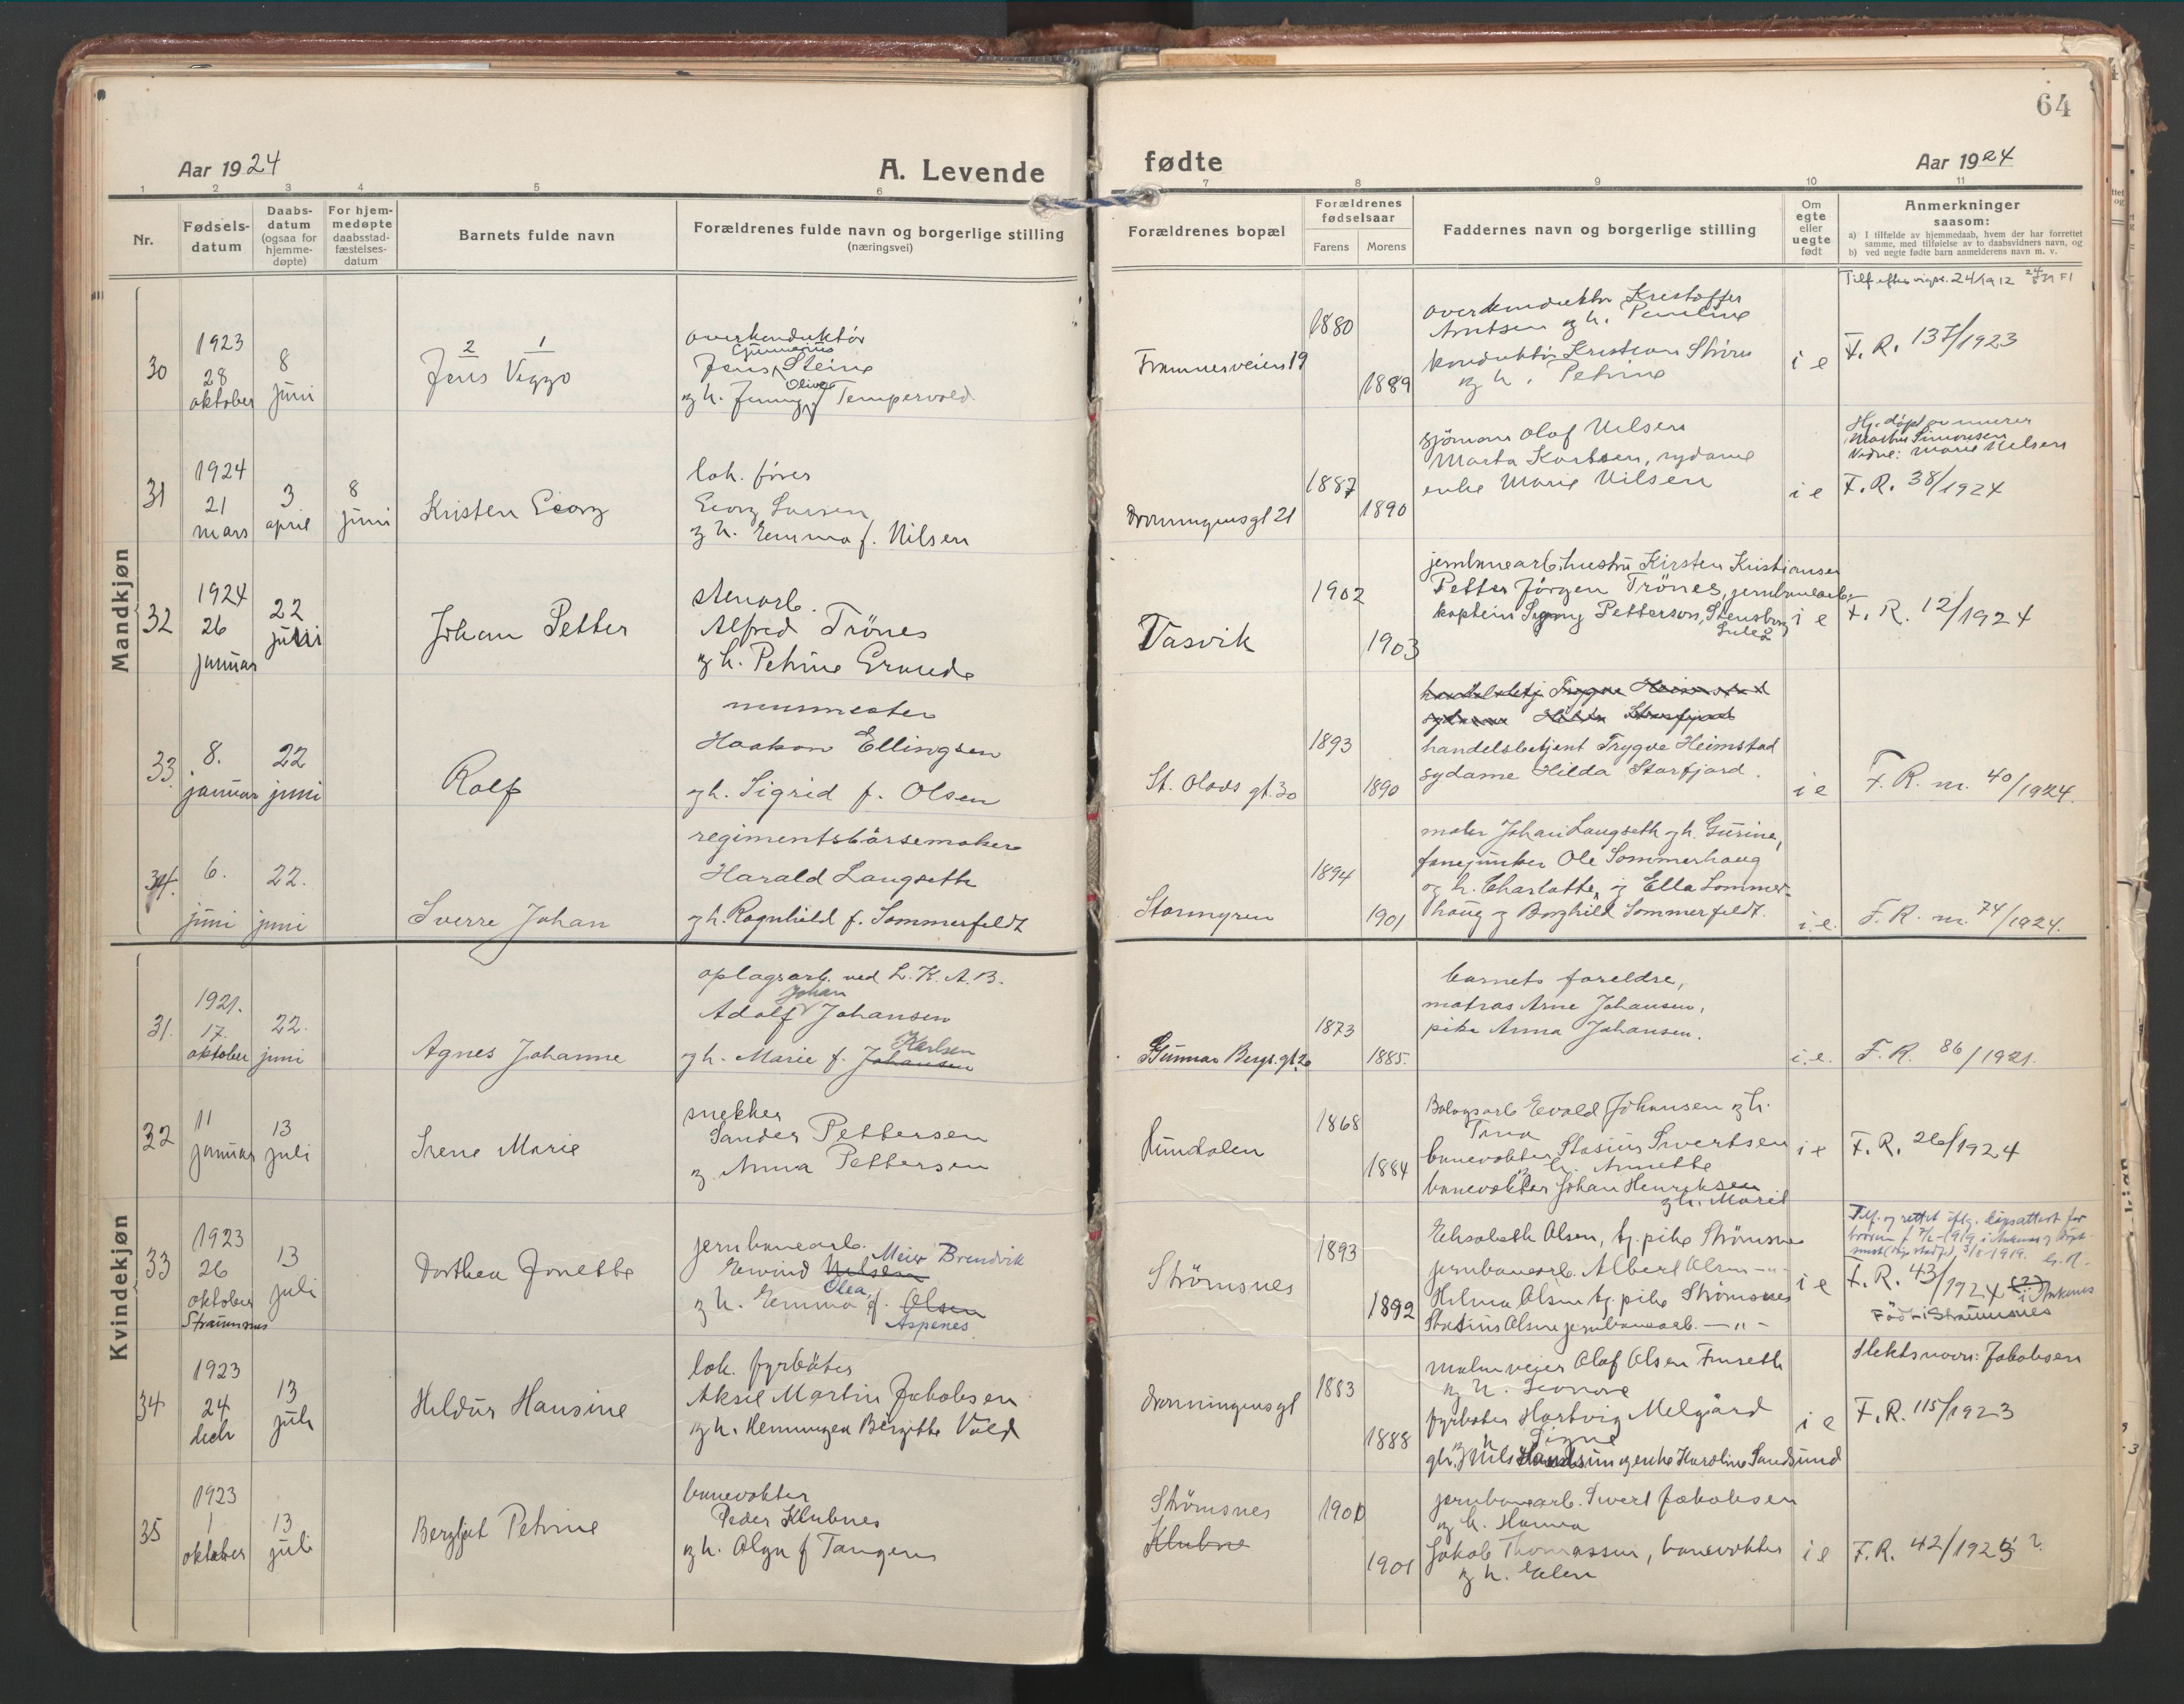 64
Aar 1924
A. Levende fødte
Aar 1924
1 2 3 4 5 6 7 8 9 10 11
Nr.
Fødsels-
datum
Daabs-
datum
(ogsaa for
hjemme-
døpte)
For hjem-
medøpte
daabsstad-
fæstelses-
datum
Barnets fulde navn
Forældrenes fulde navn og borgerlige stilling
(næringsvei)
Forældrenes bopæl
Forældrenes
fødselsaar
Farens Morens
Faddernes navn og borgerlige stilling
Om
egte
eller
uegte
født
Anmerkninger
saasom:
a) I tilfælde av hjemmedaab, hvem der har forrettet
samme, med tilføielse av to daabsvidners navn, og
b) ved uegte fødte barn anmelderens navn m. v.
Mandkjøn
30
1923
28
oktober
8
juni
2 1
Jens Viggo
overkonduktør
Jens Steine
og h. Jenny Olive f Tempervold
Framnesveien 19
1880
1889
overkonduktør Kristoffer
Arntsen og h. Pauline
konduktør Kristian
og h. Petrine
i e
24/1912
F. R. 137/1923
31
1924
21
mars
3
april
8
juni
Kristen Georg
lok. fører
Georg Larsen
og h. Emma f. Nilsen
Dronningensgt 21
1887
1890
sjømann Olaf Nilsen
Marta Karlsen, sydame
enke Marie Nilsen
i e
Hj. døpt av
Simonsen
Vidne: Marie Nilsen
F. R. 38/1924
32
1924
26
januar
22
juni
Johan Petter
stenarb.
Alfred Trönes
og h. Petrine Grunde
Tasvik
1902
1903
jernbanearb. hustru Kirsten Kristiansen
Petter Jörgen Trönes, jernbanearb.
kaptein Petterson,
i e
F. R. 12/1924
33
8.
januar
22
juni
Rolf
murmester
Haakon Ellingsen
og h. Sigrid f. Olsen
St. Olavs gt. 30
1893
1890
handelsbetj Trygve Heimstad
sydame Hilda Storfjord
handelsbetjent Trygve Heimstad
sydame Hilda Storfjord.
i e
F. R. nr. 40/1924.
34.
6.
juni
22.
juni
Sverre Johan
regimentsbørsemaker
Harald Langseth
og h. Ragnhild f. Sommerfeldt
Stormyren
1894
1901
maler Johan Langseth og h. Gurine,
fanejunker Ole Sommerhaug
og h. Charlotte, og Ella Sommer-
haug og Borghild Sommerfeldt.
i. e.
F. R. nr. 74/1924.
Kvindekjøn
31.
1921.
17.
oktober
22.
juni
Agnes Johanne
oplagsarb. ved L. K. A. B.
Adolf Johan Johansen
og h. Marie f. Johansen Karlsen
Gunnar Bergs. gt. 26
1873
1885.
barnets foreldre,
matros Arne Johansen,
pike Anna Johansen.
i. e.
F. R. 86/1921.
32
11
januar
13
juli
Irene Marie
snekker
Sander Pettersen
og Anna Pettersen
Hundalen
1868
1884
Evald Johansen og h.
Tina
banevokter Stasius Sivertsen
og h. Annette
banevokter Johan Henriksen
og h. Marit
i e
F. R. 26/1924
33
1923
26
oktober
Straumsnes
13
juli
Dorthea Jonette
jernbanearb.
Eivind Nilsen Meier Brendvik
og h. Emma Olea, f. Olsen
Aspenes
Strömsnes
1893
1892
Elisabeth Olsen, tj. pike Strömsnes
jernbanearb. Albert Olsen -"-
Hilma Olsen tj. pike Strömsnes
Stasius Olsen jernbanearb. -"-
i e
F. R. 43/1924 (2)
i Ankenes
Född i Straumsnes
34
1923
24
decbr
13
juli
Hildur Hansine
lok. fyrbøter
Aksel Martin Jakobsen
og h. Henningea Bergitte Vold
Dronningensgt
1883
1888
malmveier Olaf Olsen Furseth
og h. Leonore
fyrbøter Hartvig Melgård
og h Signe
og enke Karoline Sandsund
i e
Slektsnavn: Jakobsen
F. R. 115/1923
35
1923
1
oktober
13
juli
Bergljot Petrine
banevokter
Peder Klubnes
og h. Olga f Tangen
Strömsnes
Klubne
1900
1901
jernbanearb. Sivert Jakobsen
og h. Hanna
Jakob Thomassen, banevokter
og h. Elen
i e
F. R. 42/1923 ?